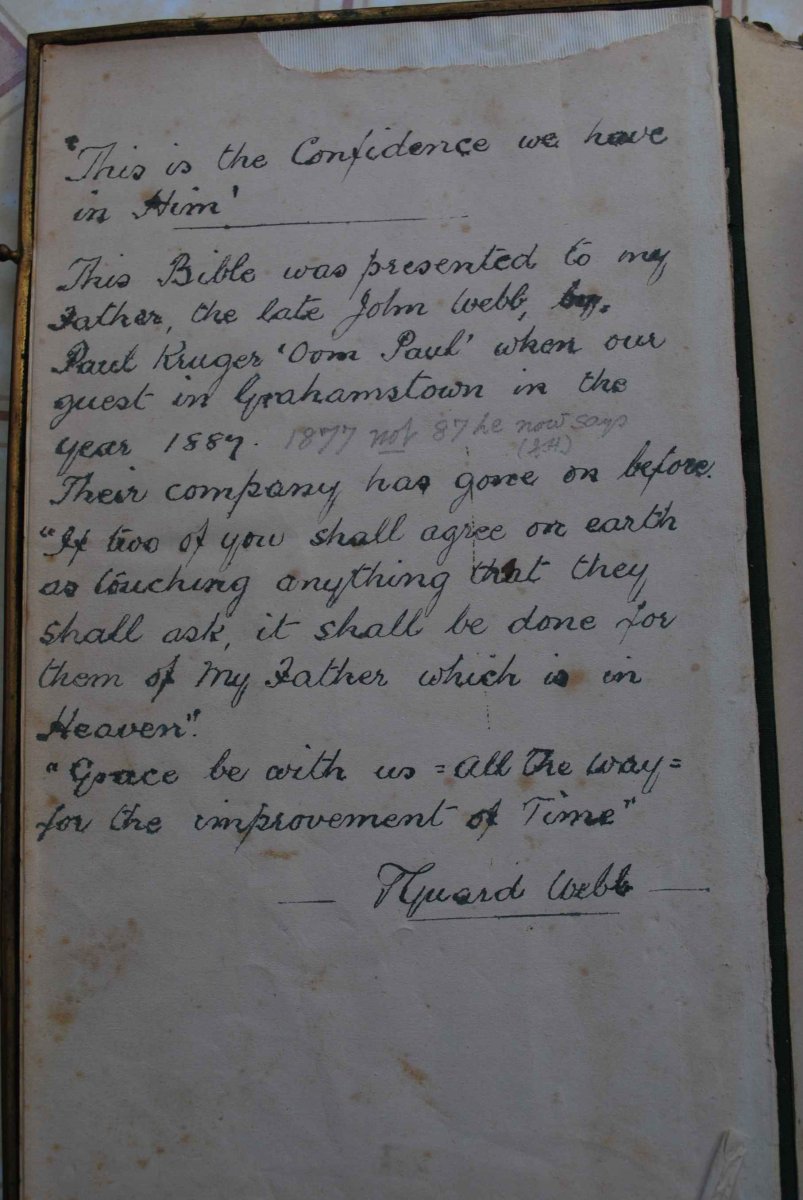 'This is the Confidence we have
in Him'
This Bible was presented to my
Father, the late John Webb, by.
Paul Kruger 'Oom Paul' when our
guest in Grahamstown in the
year 1887. 1877 not 87 he now says
(J.H)
Their company has gone on before.
"If two of you shall agree on earth
as touching anything that they
shall ask, it shall be done for
them of My Father which is in
Heaven".
"Grace be with us = all the way =
for the improvement of Time"
— TGuard Webb —